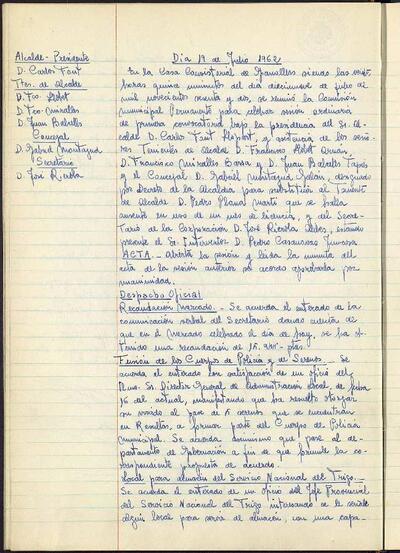 Alcalde-Presidente
D. Carlos Font
Ttes. de Alcalde
D. Fco. Llobet
D. Fco. Miralles
D. Juan Babellés
Concejal
D. Gabriel Montagud
Secretario
D. José Rierola
Dia 19 de Julio 1962
En la Casa Consistorial de Granollers siendo las
horas quince minutos del día diecinueve de julio de
mil novecientos sesenta y dos, se reunió la Comisión
municipal Permanente para celebrar sesión ordinaria
de primera convocatoria bajo la presidencia del Sr. Al-
calde D. Carlos Font Llopart, y asistencia de los seño-
res Tenientes de Alcalde D. Francisco Llobet
D. Francisco Miralles Barsa y D. Juan Babellés
y el Concejal D. Gabriel Montagud designado
por Decreto de la Alcaldía para substituir al Teniente
de Alcalde D. Pedro Planas Martí que se halla
ausente en uso de un mes de licencia, y del Secre-
tario de la Corporación D. José Rierola estando
presente el Sr. Interventor D. Pedro Casanovas
ACTA.- Abierta la sesión y leída la minuta del
acta de la sesión anterior se acordó aprobarla por
unanimidad.
Despacho Oficial
Recaudación mercado.- Se acuerda el enterado de la
comunicación verbal del Secretario dando cuenta de
que en el mercado celebrado el día de hoy, se ha ob-
tenido una recaudación de ptas.
Fusión de los Cuerpos de Policía y de Serenos.- Se
acuerda el enterado con satisfacción de un oficio del
Ilmo. Sr. Director General de Administración local de fecha
16 del actual, manifestando que ha resuelto otorgar
su visado al pase de serenos que se encuentran
en a formar parte del Cuerpo de Policía
Municipal. Se acuerda asimismo que pase al de-
partamento de Gobernación a fin de que formule la co-
rrespondiente propuesta de acuerdo.
Local para almacén del Servicio Nacional del Trigo.
Se acuerda el enterado de un oficio del Jefe Provincial
del Servicio Nacional del Trigo interesando se le señale
algún local para servir de almacén, con una capa-